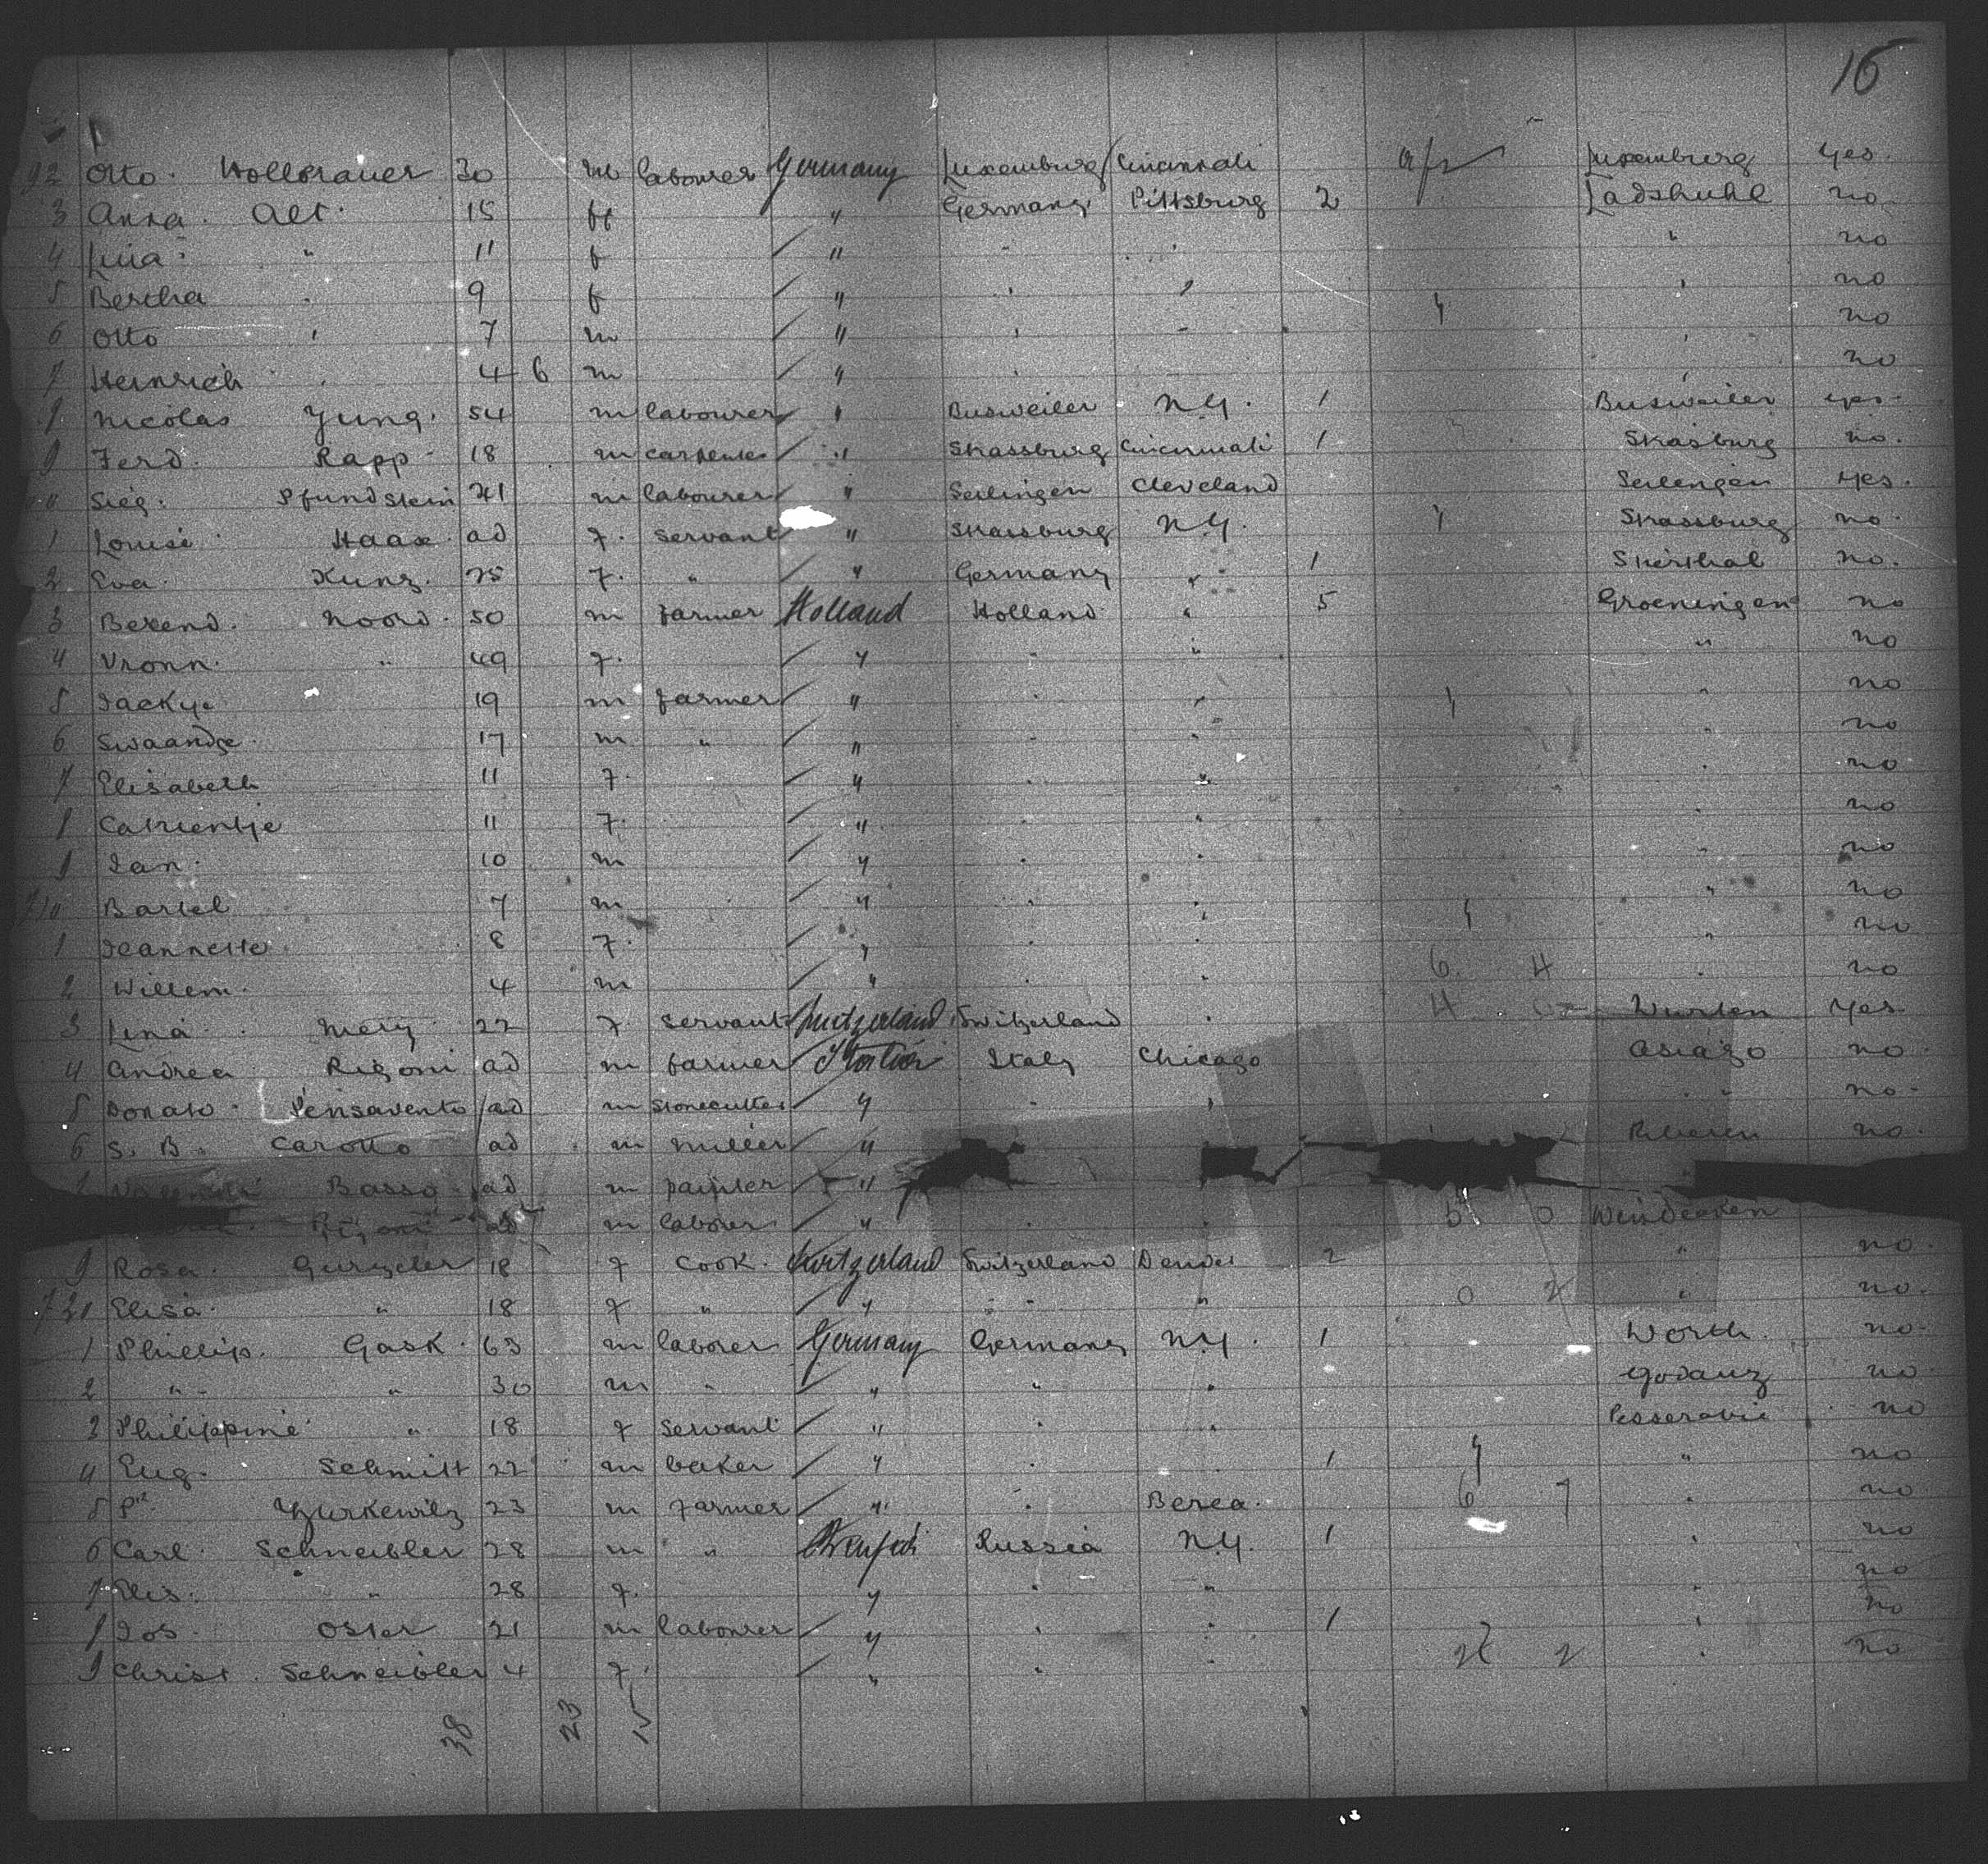 16
92 Otto Hollerauer 30 m labourer Germany Luxemburg Cincinnati Luxemburg yes
3 Anna Alt 15 f " Germany Pittsburg 2 Ladshuhl no
4 Lina " 11 f " " " " no
5 Bertha " 9 f " " " " no
6 Otto " 7 m " " " " no
7 Heinrich " 4 6 m " " " " no
Nicolas Jung 54 m labourer " Busweiler N.Y. 1 Busweiler yes
9 Ferd. Rapp 18 m carpenter " Strassburg Cincinnati 1 Strasburg no
Sieg. Pfundstein 41 m labourer " Seilingen Cleveland Seilengen yes
1 Louise Haase ad f servant " Strassburg N.Y. Strassburg no
2 Eva Kunz 25 f " " Germany " 1 no
3 Berend Noord 50 m farmer Holland Holland " 5 Groeningen no
4 Vronn " 49 f " " " " no
5 Jackye 19 m farmer " " " " no
6 Swaandje 17 m " " " " " no
7 Elisabeth 11 f " " " " no
Catrientje 11 f " " " " no
9 Jan 10 m " " " " no
Bartel 7 m " " " " no
1 Jeannette 8 f " " " " no
2 Willem 4 m " " " 6 4 " no
3 Lina Mery 22 f servant Switzerland Switzerland " 4 Wursten yes
4 Andrea Rigoni ad m farmer Italy Chicago Asiago no
5 Donato Pensavento ad m stonecutter " " " " no
6 S. B. Carotto ad m miller " no
Basso ad m painter "
Rigoni ad m laborer " " " 6 0
9 Rosa Gurzeler 18 f cook Switzerland Switzerland Denver 2 " no
Elisa " 18 f " " " " 0 2 " no
1 Phillip Gask 63 m laborer Germany Germany N.Y. 1 Worth no
2 " " 30 m " " " " no
3 Philippine " 18 f servant " " " no
4 Eug. Schmitt 22 m baker " " " 1 " no
5 Yurkewitz 23 m farmer " " Berea 6 7 " no
6 Carl Schneibler 28 m " Russia N.Y. 1 " no
7 Elis. " 28 f " " " " no
Jos. Oster 21 m labourer " " " 1 " no
9 Christ. Schneibler 4 f " " " 2 " no
38 23 15